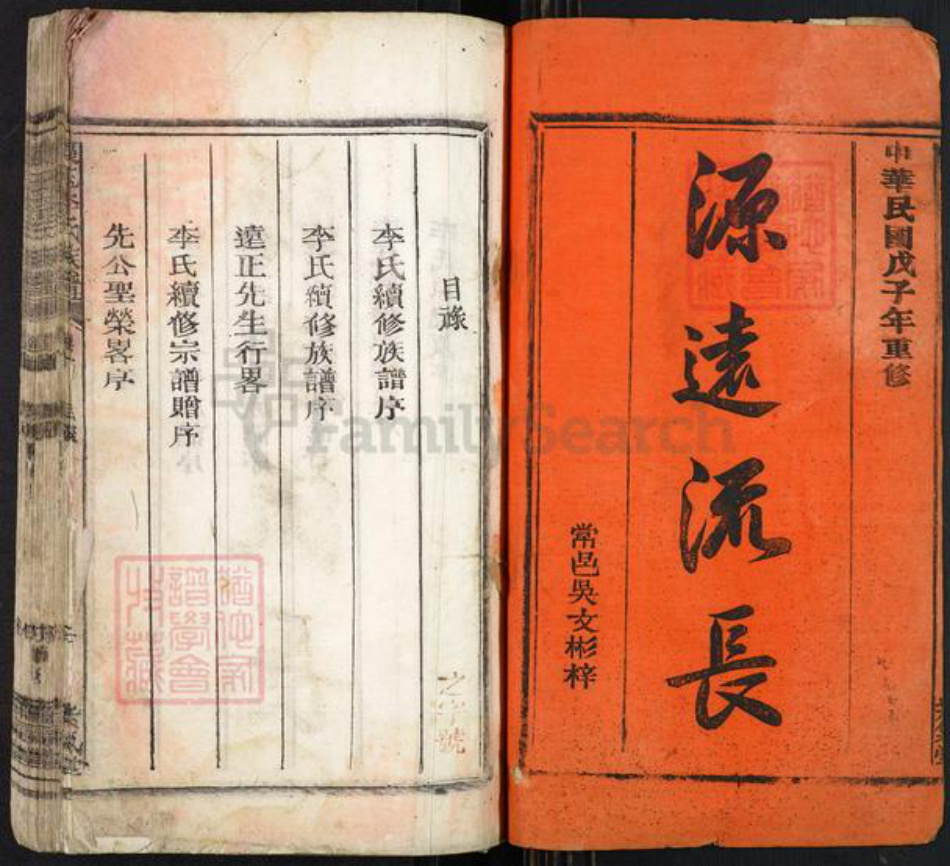 中華民國戊子年重修
源遠流長
常邑吳文彬梓
目錄
李氏續修族譜序
李氏續修族譜序
遠正先生行畧
李氏續修宗譜贈序
先公聖榮畧序
之字號
猶他家譜學會收藏
FamilySearch